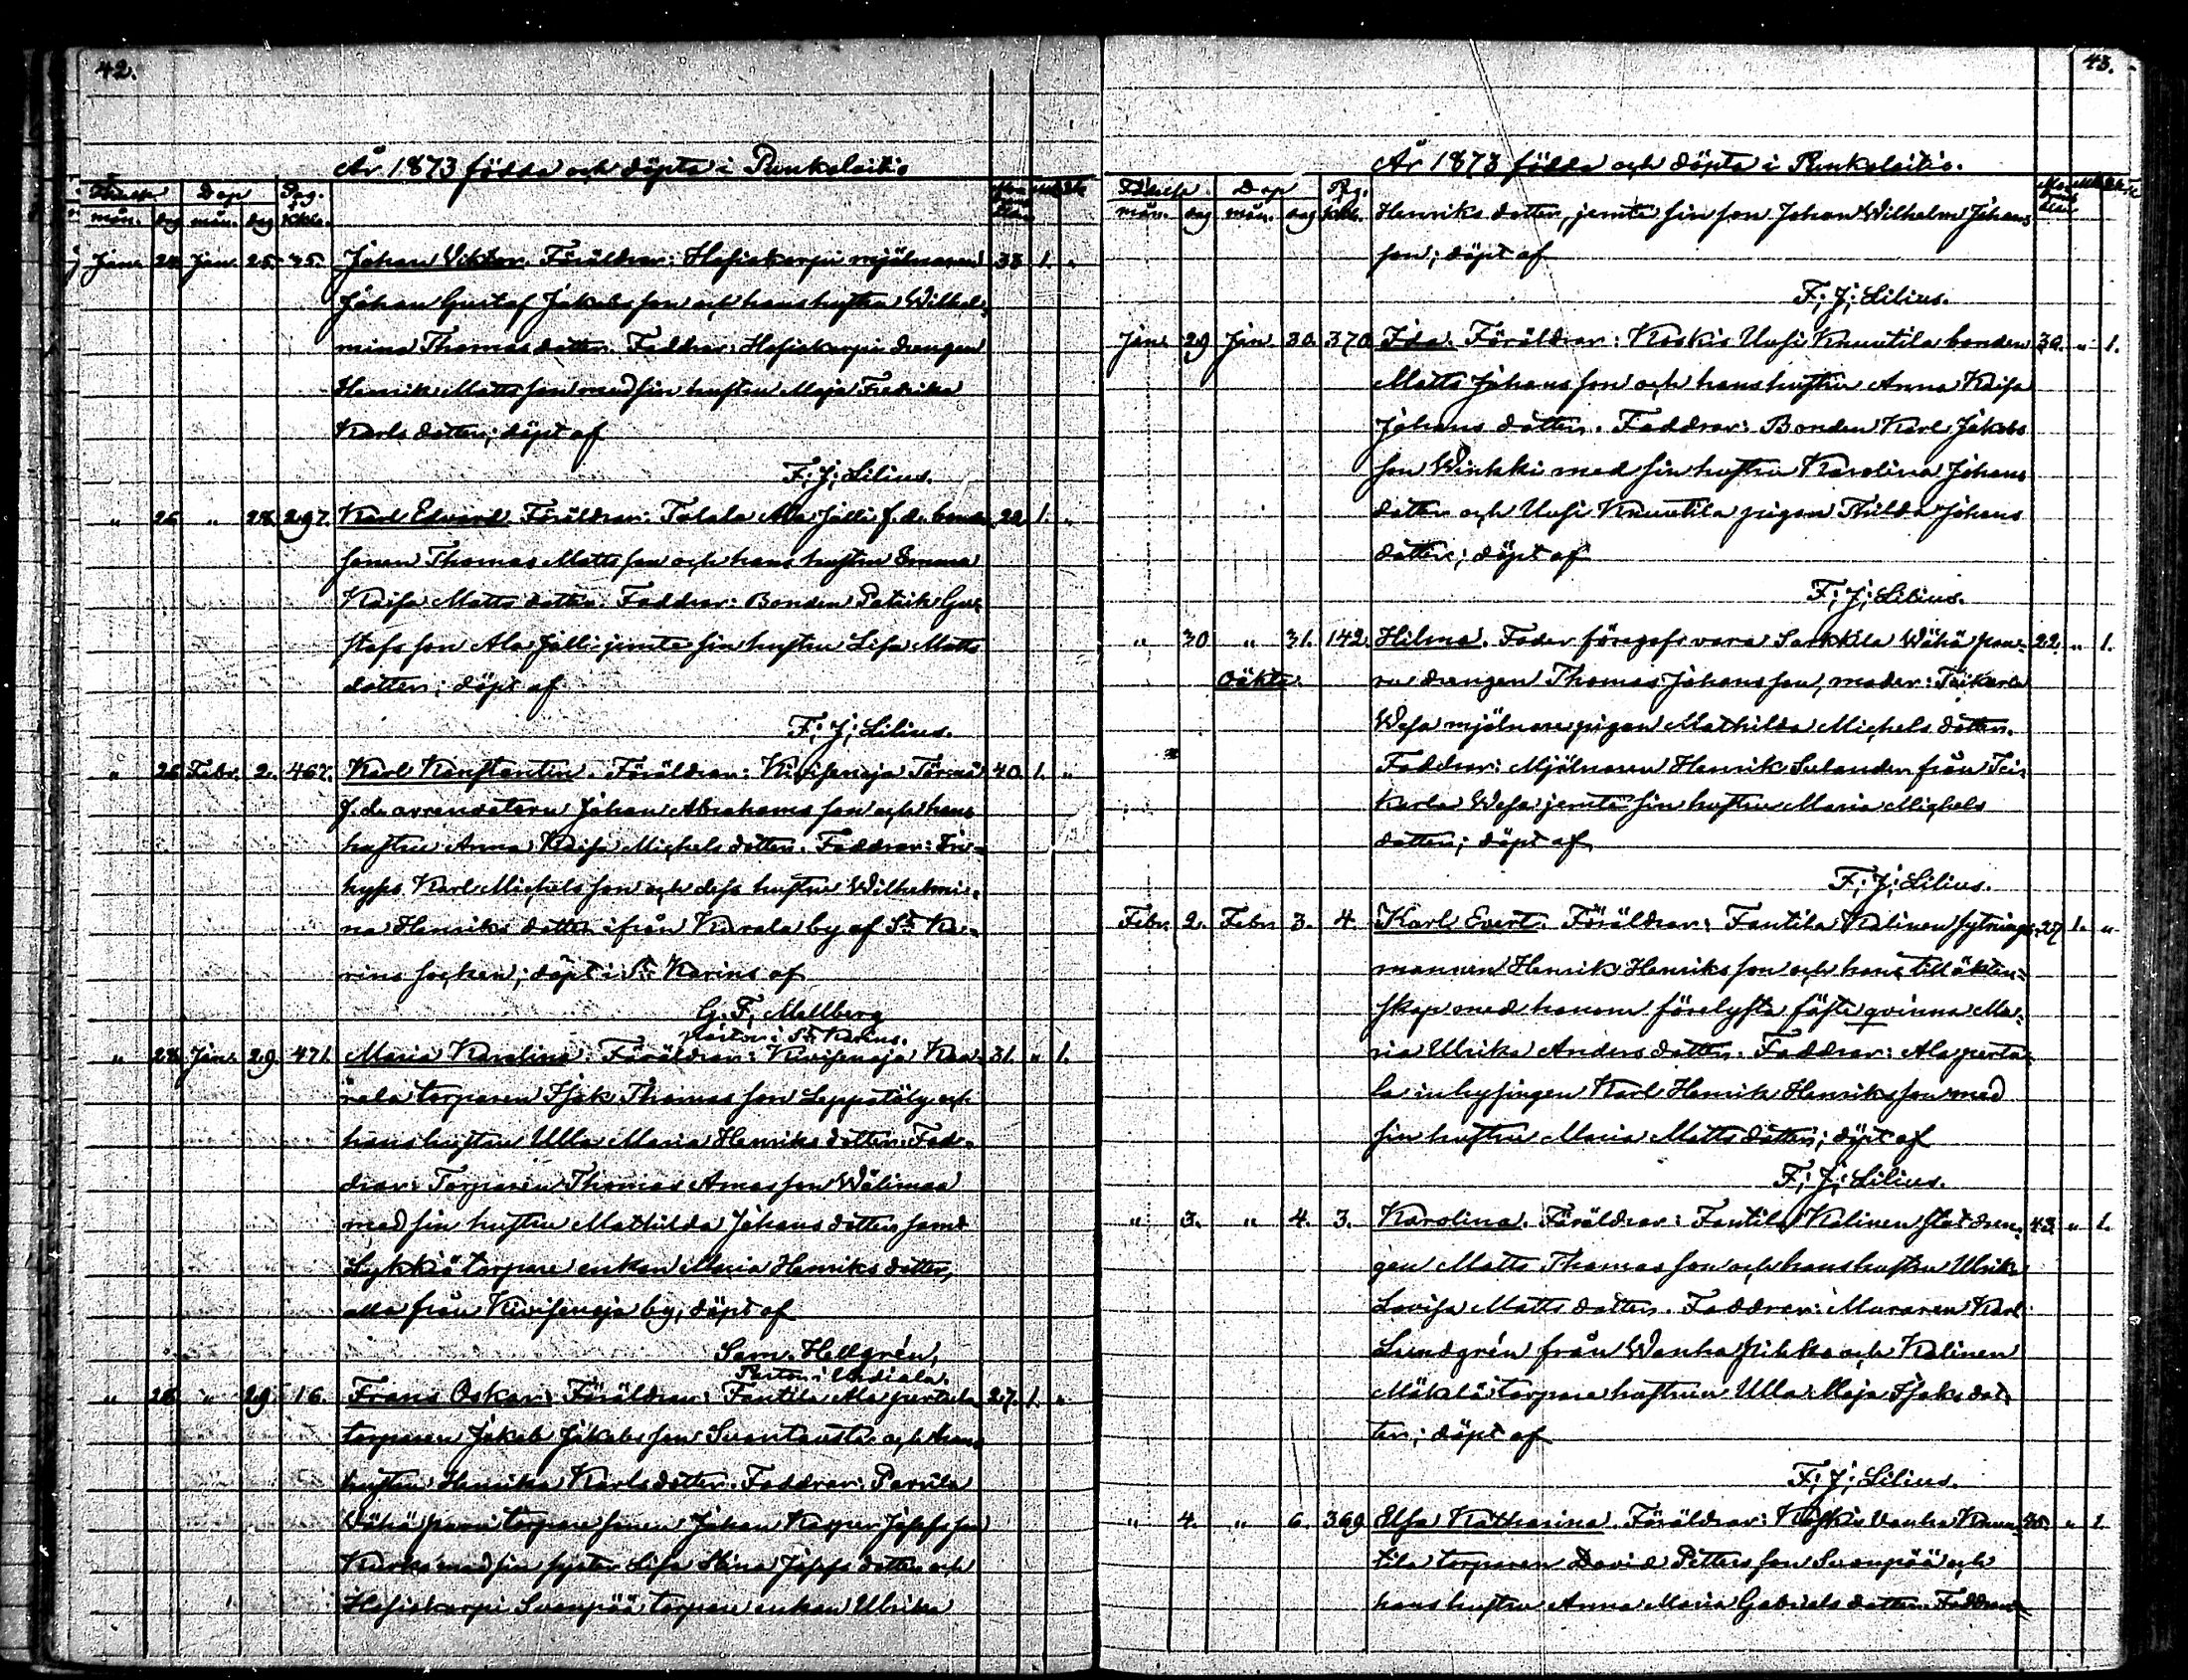 42.
År 1873 födda och döpta i Punkalaitio
Födelse Dop Pag. i
mån. dag mån. dag Kkb.
Jan. 24 Jan. 25. 75. Johan Viktor. Föräldrar: Hafiskarpis mjölnaren 33 1. "
Johan Gustaf Jakobsson och hans hustru Wilhel-
mina Thomasdotter. Faddrar: Hafiskarpis drengen
Henrik Mattsson med sin hustru Maja Fredrika
Karlsdotter; döpt af
F. J. Lilius.
" 26 " 28. 297. Karl Edvard. Föräldrar: Talala Ala Jälli f.d. bonde 20 1. "
sonen Thomas Mattsson och hans hustru Emma
Kaisa Mattsdotter. Faddrar: Bonden Patrik Gu-
stafsson Ala Jälli jemte sin hustru Lisa Matts
dotter; döpt af
F. J. Lilius.
" 26 Febr. 2. 467. Karl Konstantin. Föräldrar: Kivisenoja Törmä 40. 1. "
f.d. arrendatorn Johan Abrahamsson och hans
hustru Anna Kaisa Michelsdotter. Faddrar: In-
hyss Karl Michelsson och dess hustru Wilhelmi-
na Henriksdotter ifrån Karala by af St Ka-
rins socken; döpt i St. Karins af
G. F. Mellberg
pastor i St. Karins.
" 28. Jan. 29. 471. Maria Karolina. Föräldrar: Kivisenoja Kaa- 31. " 1.
rala torparen Isak Thomasson Leppäköly och
hans hustru Ulla Maria Henriksdotter. Fad-
drar: Torparen Thomas Amosson Wälimaa
med sin hustru Mathilda Johansdotter samt
Lykkiö torpare enkan Maria Henriksdotter,
alla från Kivisenoja by; döpt af
Sam. Hellgrén,
Pastor i Urdiala.
" 26 " 29. 16. Frans Oskar. Föräldrar: Fantila Ala pertula 27. 1. "
torparen Jakob Jakobsson Suontausta och hans
hustru Henrika Karlsdotter. Faddrar: Parrila
Wähä parri torpare sonen Johan Kasper Josefsson
Kurki med sin syster Lisa Stina Josefsdotter och
Hafiskarpi Suonpää torpare enkan Ulrika
43.
År 1873 födda och döpta i Punkalaitio.
Födelse Dop Pag.
mån. dag mån. dag Kkb. Henriksdotter, jemte sin son Johan Wilhelm Johans
son; döpt af
F. J. Lilius.
Jan. 29 Jan. 30. 370. Ida. Föräldrar: Koskis Uusi Knuutila bonden 30. " 1.
Matts Johansson och hans hustru Anna Kaisa
Johansdotter. Faddrar: Bonden Karl Jakobs
son Winkki med sin hustru Karolina Johans
dotter och Uusi Knuutila pigan Thilda Johans
dotter; döpt af
F. J. Lilius.
" 30 " 31. 142. Hilma. Fader föregafs vara Sarkkila Wähä paa- 22. " 1.
Oäkta. ru drengen Thomas Johansson, moder: Teikarla
Wesa mjölnare pigan Mathilda Michelsdotter.
Faddrar: Mjölnaren Henrik Sulander från Tei-
karla Wesa jemte sin hustru Maria Michels
dotter; döpt af
F. J. Lilius.
Febr. 2. Febr. 3. 4. Karl Evert. Föräldrar: Fantila Kalinen sytnings- 27 1. "
mannen Henrik Henriksson och hans till äkten-
skap med honom förelysta fäste qvinna Ma-
ria Ulrika Andersdotter. Faddrar: Ala pertu-
la inhysingen Karl Henrik Henriksson med
sin hustru Maria Mattsdotter; döpt af
F. J. Lilius.
" 3. " 4. 3. Karolina. Föräldrar: Fantila Kalinen statdren- 43. " 1.
gen Matts Thomasson och hans hustru Ulrika
Lovisa Mattsdotter. Faddrar: Muraren Karl
Lundgrén från Wanha Kihko och Kalinen
Mäkelä torpare hustrun Ulla Maja Isaksdot-
ter; döpt af
F. J. Lilius.
" 4. " 6. 369 Elsa Katharina. Föräldrar: Koskis Vanha Knuu- 35. " 1.
tila torparen David Pettersson Suonpää och
hans hustru Anna Maria Gabrielsdotter. Faddrar: